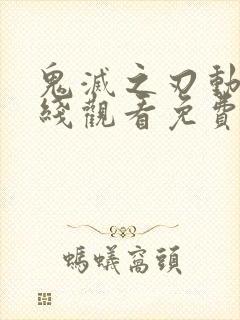 鬼滅之刃動
綫觀看免費
螞蟻窩頭